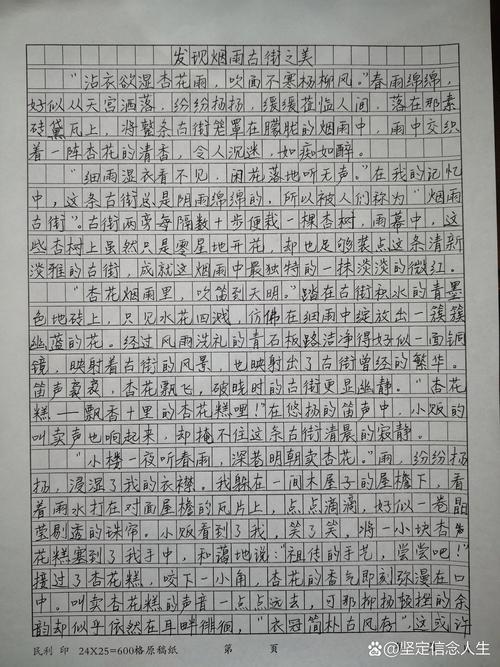 发现烟雨古街之美
“沾衣欲湿杏花雨，吹面不寒杨柳风。”春雨绵绵，
好似从天宫洒落，纷纷扬扬，缓缓莅临人间，落在那素
砖黛瓦上，将整条古街笼罩在朦胧的烟雨中，雨中交织
着一阵杏花的清香，令人沉迷，如痴如醉。
“细雨湿衣看不见，闲花落地听无声。”在我的记忆
中，这条古街总是阴雨绵绵的，所以被人们称为“烟雨
古街”。古街两旁每隔数十步便栽一棵杏树，雨幕中，这
些杏树上虽然只是零星地开花，却也足够装点这条清新
淡雅的古街，成就这烟雨中最独特的一抹淡淡的微红。
“杏花烟雨里，吹笛到天明。”踏在古街积水的青墨
色地砖上，只见水花四溅，仿佛在细雨中绽放出一簇簇
幽蓝的花。经过风雨洗礼的青石板路洁净得好似一面铜
镜，映射着古街的风景，也映射出了古街曾经的繁华。
笛声袅袅，杏花飘飞，破晓时的古街更显幽静。“杏花
糕——飘香十里的杏花糕哩！”在悠扬的笛声中，小贩的
叫卖声也响起来，却掩不住这条古街清晨的寂静。
“小楼一夜听春雨，深巷明朝卖杏花。”雨，纷纷扬
扬，浸湿了我的衣襟。我躲在一间木屋子的屋檐下，看
着雨水打在对面屋檐的瓦片上，点点滴滴，好似一卷晶
莹剔透的珠帘。小贩看到了我，笑了笑，将一小块杏
花糕塞到了我手中，和蔼地说：“祖传的手艺，尝尝吧！”
接过了杏花糕，咬下一小角，杏花的香气即刻弥漫在口
中。叫卖杏花糕的声音一点点远去，可那抑扬顿挫的余
韵却似乎依然在耳畔徘徊，“衣冠简朴古风存”，这或许
民利 印 24X25=600格原稿纸 第 页
@坚定信念人生